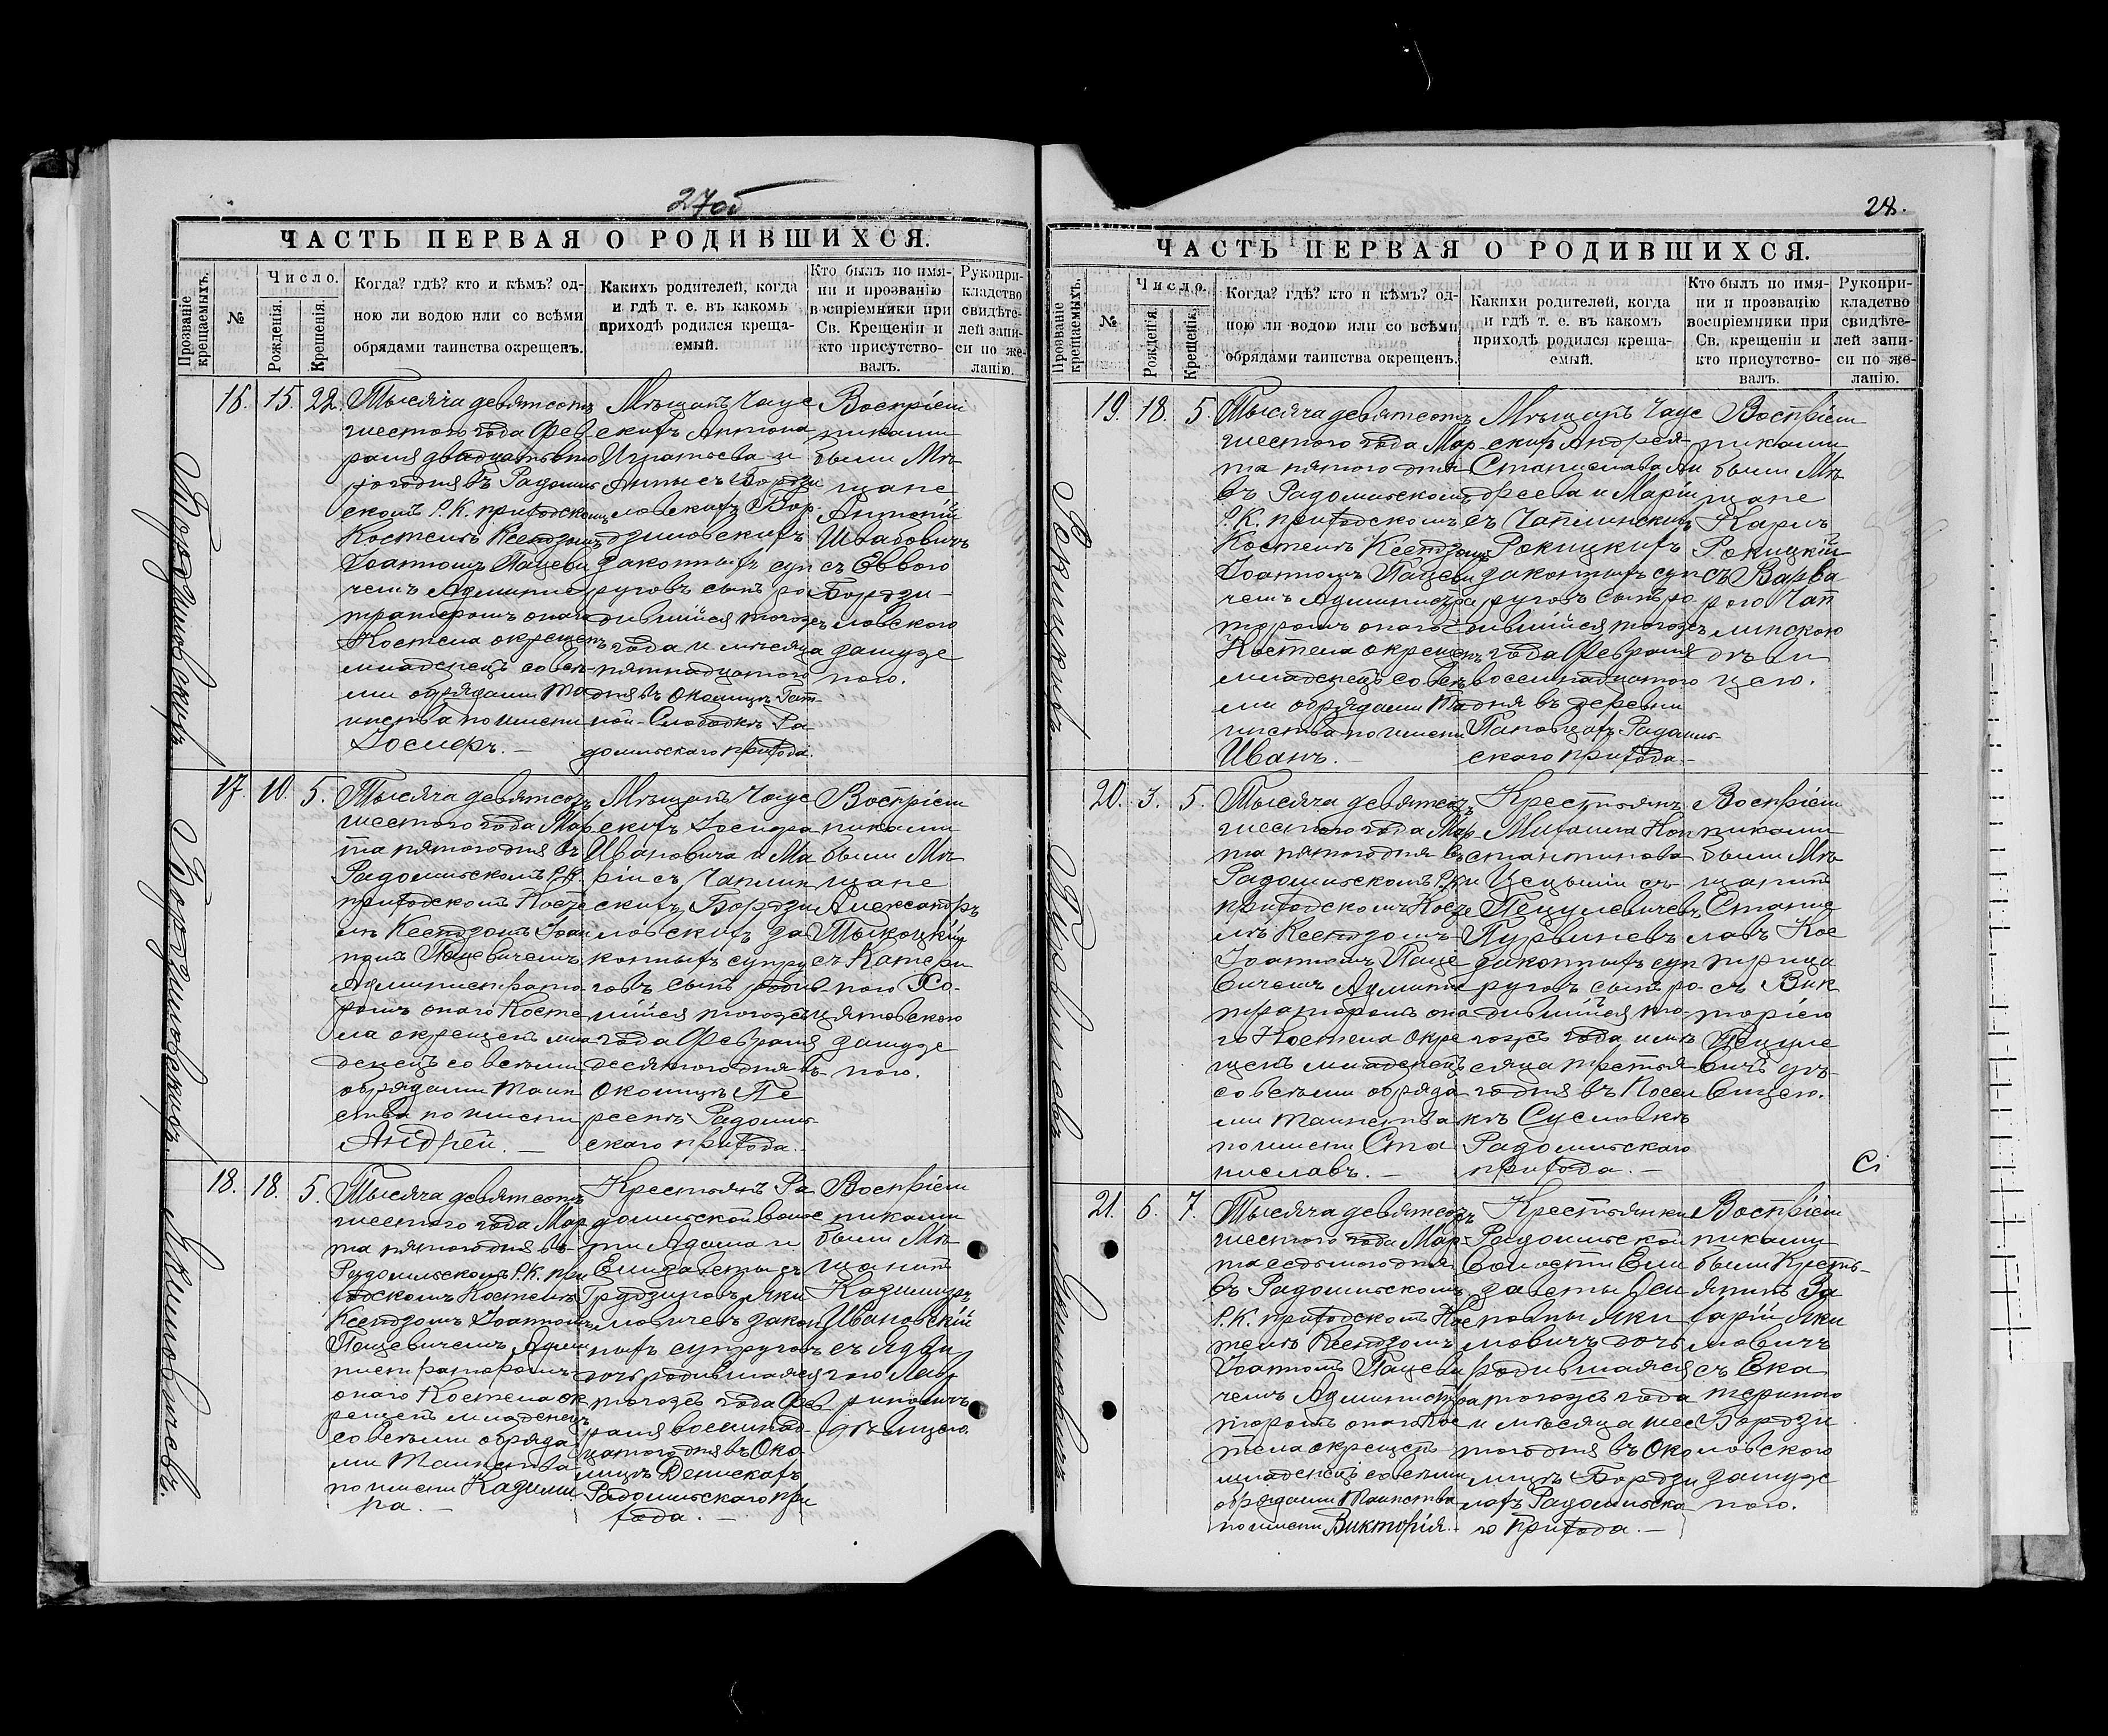 27об
ЧАСТЬ ПЕРВАЯ О РОДИВШИХСЯ.
Прозваніе крещаемыхъ.
№
Число.
Рожденія.
Крещенія.
Когда? гдѣ? кто и кѣмъ? од-
ною ли водою или со всѣми
обрядами таинства окрещенъ.
Какихъ родителей, когда
и гдѣ т. е. въ какомъ
приходѣ родился креща-
емый.
Кто былъ по имя-
ни и прозванію
воспріемники при
Св. Крещеніи и
кто присутство-
валъ.
Рукопри-
кладство
свидѣте-
лей запи-
си по же-
ланію.
Бордзиловскихъ
16. 15. 22.
Тысяча девятсотъ
шестого года Фев-
раля двадцатьвто
рогодня въ Радомль
скомъ Р. К. приходскомъ
Костелѣ Ксендзомъ
Іоанномъ Пацеви
чемъ Админис
траторомъ онаго
Костела окрещенъ
младенецъ со всѣ-
ми обрядами Та
инства по имени
Іосифъ. —
Мѣщанъ Чаус
скихъ Антона
Игнатьева и
Анны съ Бордзи
ловскихъ Бор-
дзиловскихъ
законныхъ суп
руговъ сынъ ро
дившійся тогожъ
года и мѣсяца
пятнадцатого
дня въ Околицѣ Гат-
ной-Слободкѣ Ра
домльскаго прихода.
Воспріем
никами
были Мѣ-
щане
Антоній
Ивановичъ
съ Еввою
Бордзи-
ловскою
замуже
ною.
Бордзиловскихъ
17. 10. 5.
Тысяча девятсотъ
шестого года Мар
та пятогодня въ
Радомльскомъ Р.К.
приходскомъ Косте
лѣ Ксендзомъ Іоан
номъ Пацевичемъ
Администрато-
ромъ онаго Косте
ла окрещенъ мла
денецъ со всѣми
обрядами Таин
ства по имени
Андрей. —
Мѣщанъ Чаус
скихъ Іосифа
Ивановича и Ма
ріи съ Чаплин
скихъ Бордзи
ловскихъ за
конныхъ супру
говъ сынъ родив-
шійся тогожъ
года Февраля
десятогодня въ
Околицѣ Пе
рескѣ Радомль-
скаго прихода. —
Воспріем
никами
были Мѣ-
щане
Александръ
Тыкоцкій
съ Катери
ною Хо-
цяновскою
замуже
ною.
Якимовичевъ.
18. 18. 5.
Тысяча девятсотъ
шестого года Мар
та пятогодня въ
Радомльскомъ Р.К. при
ходскомъ Костелѣ
Ксендзомъ Іоанномъ
Пацевичемъ Адми
нистраторомъ
онаго Костела ок
рещенъ младенецъ
со всѣми обряда
ми Таинства
по имени Казими
ра. —
Крестьянъ Ра
домльской волос
ти Адама и
Елизаветы съ
Грудзиновъ Яки
мовичевъ закон
ныхъ супруговъ
дочь родившаяся
тогожъ года Фев
раля восемнад-
цатого дня въ Око
лицѣ Денискахъ
Радомльскаго при
хода. —
Воспріем
никами
были Мѣ
щанинъ
Казиміръ
Ивановскій
съ Ядви
гою Лав
риновичъ
дѣвицею.
28.
ЧАСТЬ ПЕРВАЯ О РОДИВШИХСЯ.
Прозваніе крещаемыхъ.
№
Число.
Рожденія.
Крещенія.
Когда? гдѣ? кто и кѣмъ? од-
ною ли водою или со всѣми
обрядами таинства окрещенъ.
Какихи родителей, когда
и гдѣ т. е. въ какомъ
приходѣ родился креща-
емый.
Кто былъ по имя-
ни и прозванію
воспріемники при
Св. крещеніи и
кто присутство-
валъ.
Рукопри-
кладство
свидѣте-
лей запи-
си по же-
ланію.
Рокицкихъ
19. 18. 5.
Тысяча девятсотъ
шестого года Мар-
та пятого дня
въ Радомльскомъ
Р.К. приходскомъ
Костелѣ Ксендзомъ
Іоанномъ Пацеви
чемъ Администра
торомъ онаго
Костела окрещенъ
младенецъ со всѣ
ми обрядами Та
инства по имени
Иванъ. —
Мѣщанъ Чаус
скихъ Андрея-
Станислава Ан
дреева и Маріи
съ Чаплинскихъ
Рокицкихъ
законныхъ суп
руговъ сынъ ро-
дившійся тогожъ
года Февраля
восемнадцатого
дня въ деревни
Пановцахъ Радомль-
скаго прихода. —
Воспріем
никами
были Мѣ-
щане
Карлъ
Рокицкій
съ Варва
рою Чап
линскою
дѣви
цею.
Пурвиневъ
20. 3. 5.
Тысяча девятсотъ
шестого года Мар
та пятогодня въ
Радомльскомъ Р.К.
приходскомъ Косте
лѣ Ксендзомъ
Іоанномъ Паце
вичемъ Админи
траторомъ она
го Костела окре
щенъ младенецъ
со всѣми обряда
ми Таинства
по имени Ста
ниславъ. —
Крестьянъ
Михаила Кон
стантинова
и Цецыліи съ
Пецулевичевъ
Пурвиневъ
законныхъ суп
руговъ сынъ ро-
дившійся то-
гожъ года и мѣ
сяца третья
годня въ Посел
кѣ Сусловкѣ
Радомльскаго
прихода. —
Воспріем
никами
были Мѣ-
щанинъ
Станис
лавъ Кос
трица
съ Вик
торіею
Пецуле
вичъ дѣ-
вицею.
Сі
Якимовичъ
21. 6. 7.
Тысяча девятсотъ
шестого года Мар-
та седьмогодня
въ Радомльскомъ
Р.К. приходскомъ Кос
телѣ Ксендзомъ
Іоанномъ Пацеви
чемъ Администра
торомъ онаго Кос
тела окрещенъ
младенецъ со всѣми
обрядами Таинства
по имени Викторія. —
Крестьянки
Радомльской
волости Ели
заветы Оси
повны Яки
мовичъ дочь
родившаяся
тогожъ года
и мѣсяца шес
тогодня въ Око
лицѣ Бордзи
лахъ Радомльска
го прихода. —
Воспріем
никами
были Кресть-
янинъ За
харій Яки
мовичъ
съ Ека
териною
Бордзи
ловскою
замуже
ною.